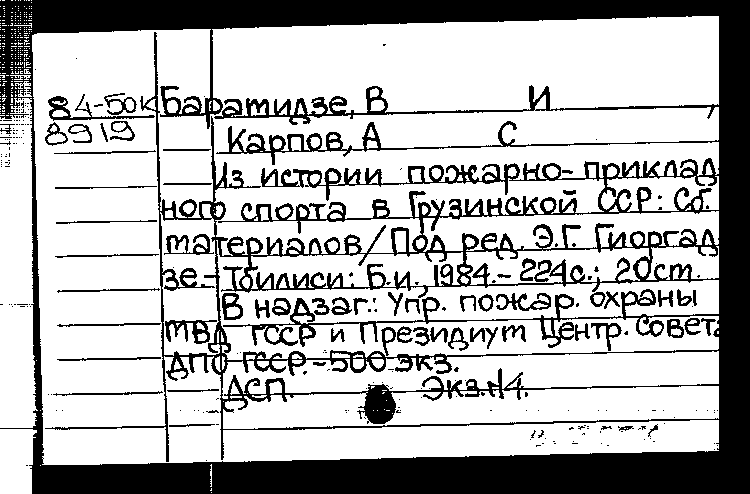 84-50к Баратидзе, В И ,
8919 Карпов, А С
Из истории пожарно-приклад
ного спорта в Грузинской ССР: Сб.
материалов/Под ред. Э.Г. Гиоргад
зе.- Тбилиси: Б.и., 1984.- 224с.; 20см.
В надзаг.: Упр. пожар. охраны
МВД ГССР и Президиум Центр. Совета
ДПО ГССР.-500 экз.
ДСП. Экз.№4.